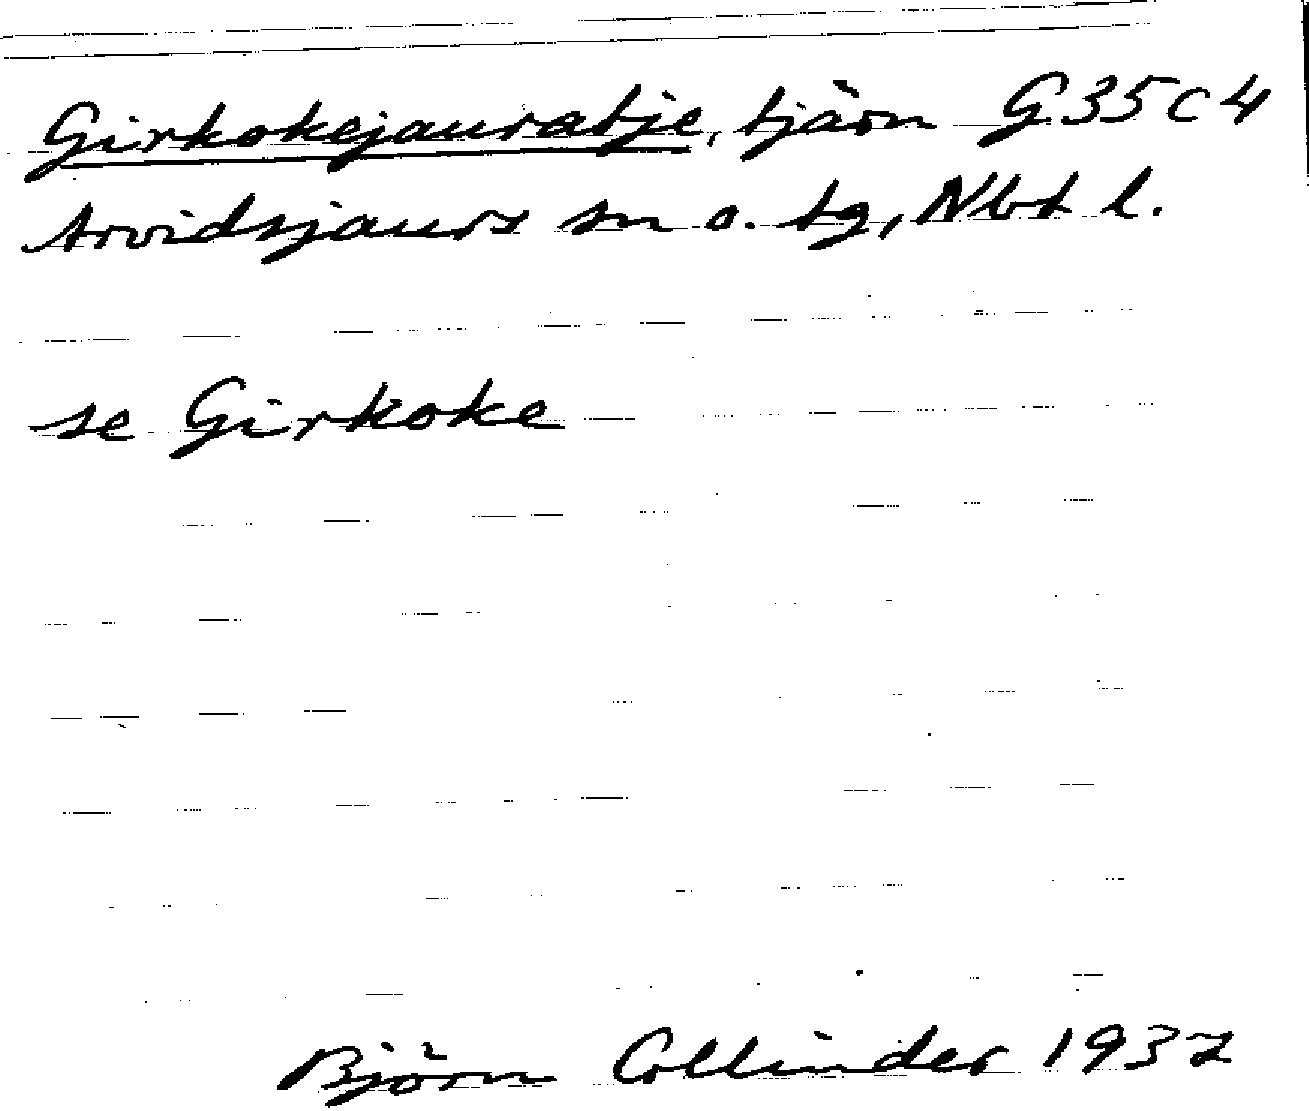 Girkokejauratje, tjärn G35C4
Arvidsjaurs sn o. tg, Nbt l.
se Girkoke
Björn Collinder 1937